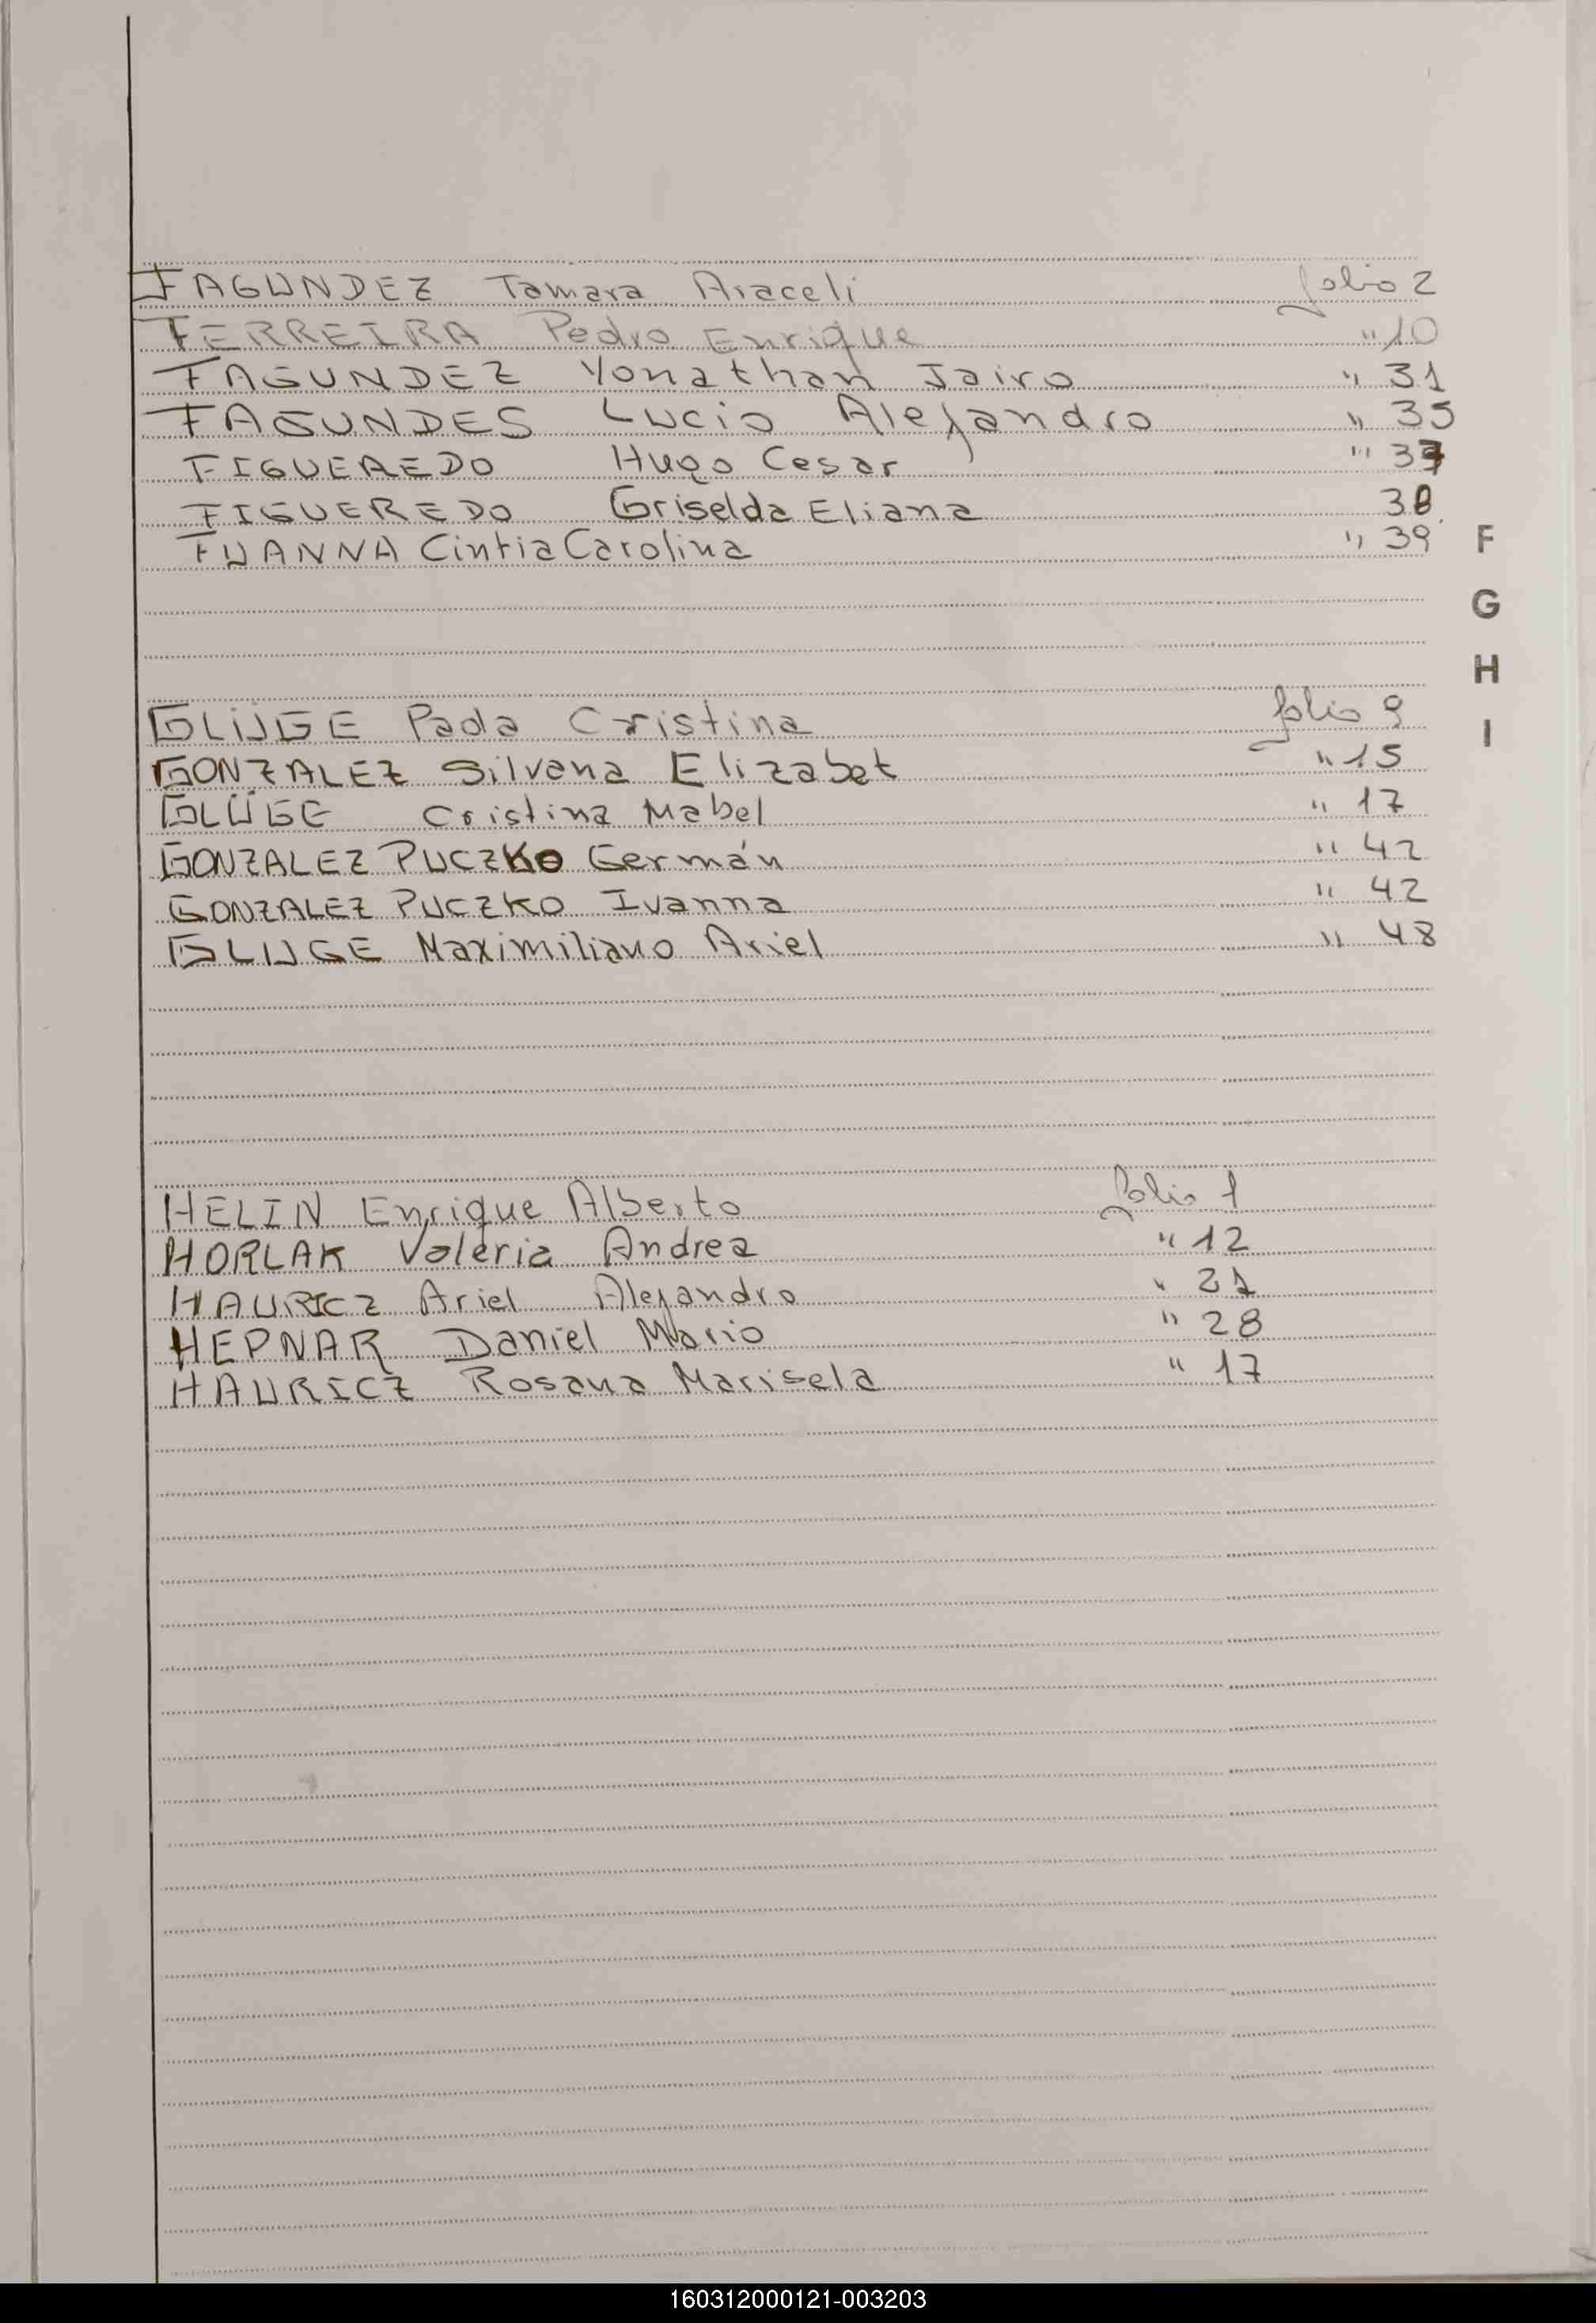 FAGUNDEZ Tamara Araceli folio 2
FERREIRA Pedro Enrique " 10
FAGUNDEZ Yonathan Jairo " 31
FAGUNDES Lucio Alejandro " 35
FIGUEREDO Hugo Cesar " 37
FIGUEREDO Griselda Eliana 38
FUANNA Cintia Carolina " 39
F
G
H
I
GLÜGE Paola Cristina folio 9
GONZALEZ Silvana Elizabet " 15
GLÜGE Cristina Mabel " 17
GONZALEZ PUCZKO Germán " 42
GONZALEZ PUCZKO Ivanna " 42
GLUGE Maximiliano Ariel " 48
HELIN Enrique Alberto folio 1
HORLAK Valeria Andrea " 12
HAURICZ Ariel Alejandro " 21
HEPNAR Daniel Mario " 28
HAURICZ Rosana Marisela " 17
160312000121-003203